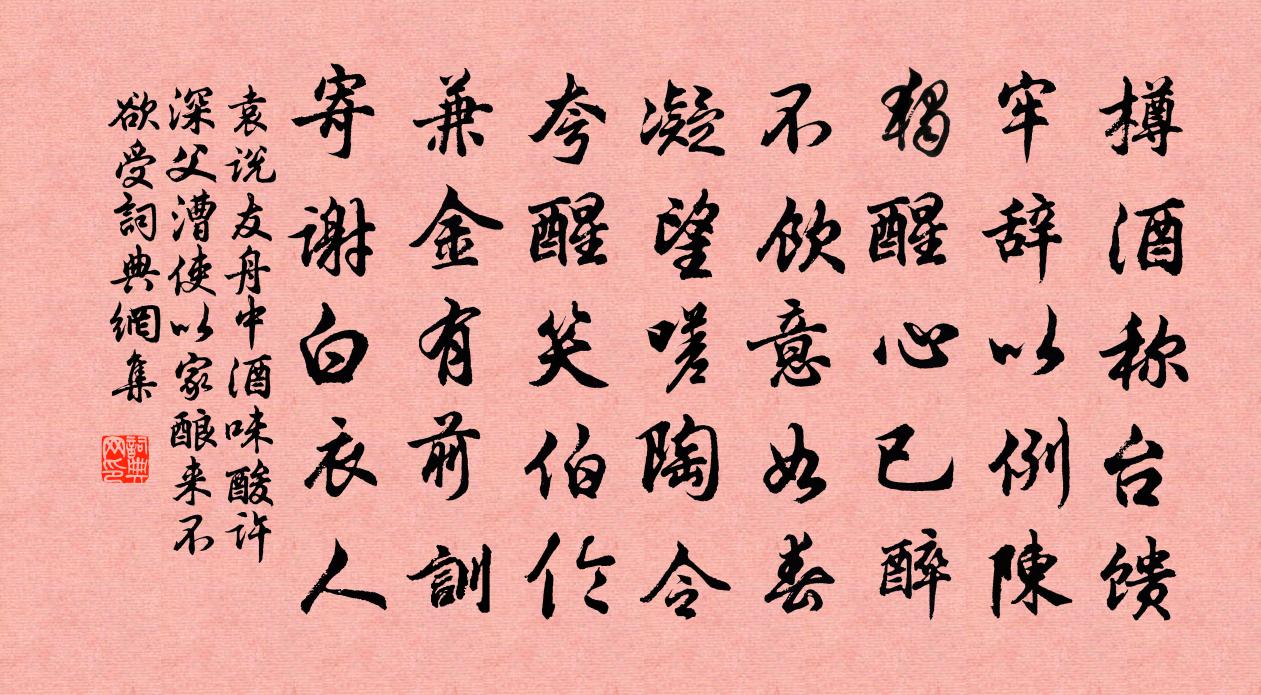 樽酒称台馈
牢辞以例陳
獨醒心已醉
不飲意如春
凝望嗟陶令
夸醒笑伯伦
兼金有前訓
寄谢白衣人
袁说友舟中酒味酸许
深父漕使以家酿来不
欲受詞典網集
詞典网印